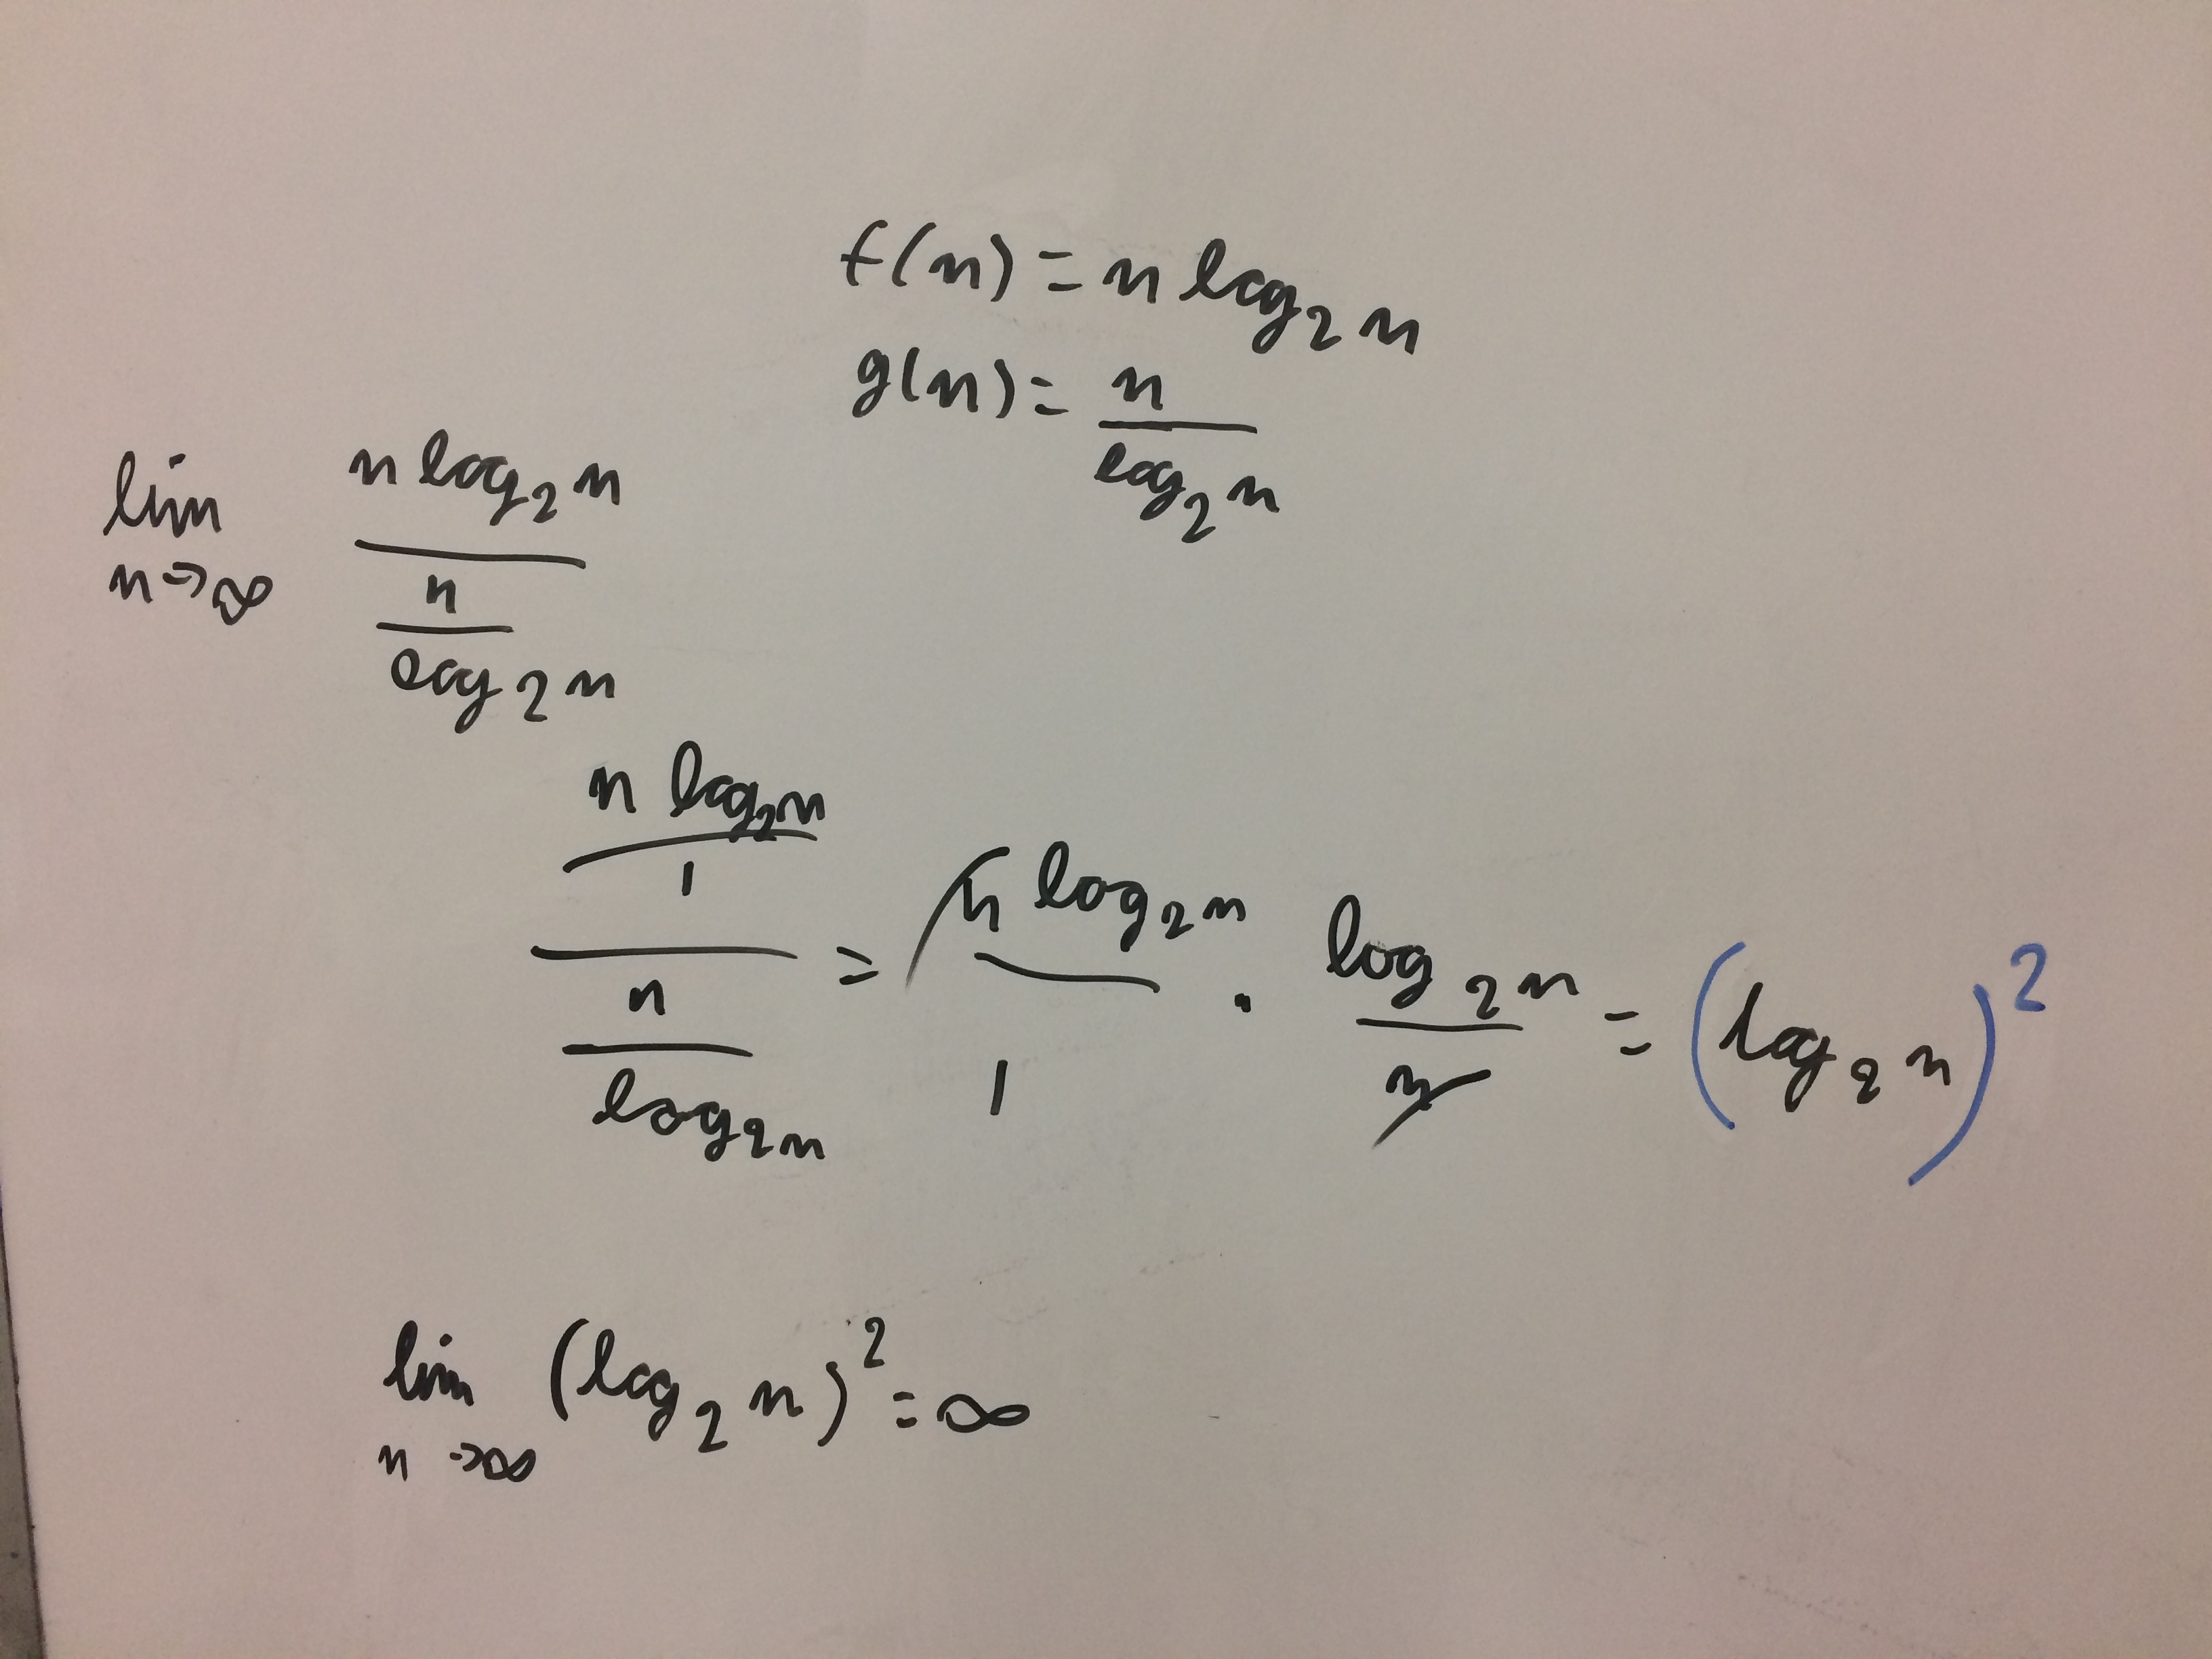 f(n) = n log₂ n
g(n) = n / log₂ n
lim n→∞ (n log₂ n) / (n / log₂ n)
(n log₂ n / 1) / (n / log₂ n) = n log₂ n / 1 · log₂ n / n = (log₂ n)²
lim n→∞ (log₂ n)² = ∞